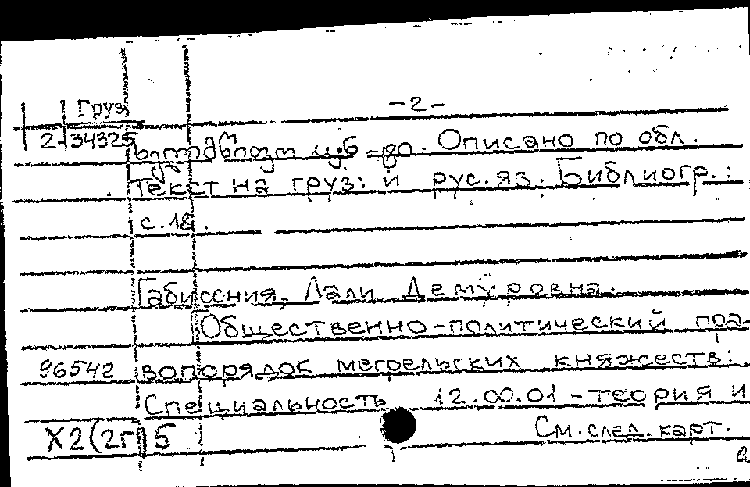 Груз -2-
2-34325 Описано по обл.
Текст на груз. и рус. яз. Библиогр.:
с. 18.
Габисония, Лали Демуровна.
Общественно-политический пра-
96542 вопорядок мегрельских княжеств:
Специальность 12.00.01 - теория и
Х2(2Г)5 См. след. карт.